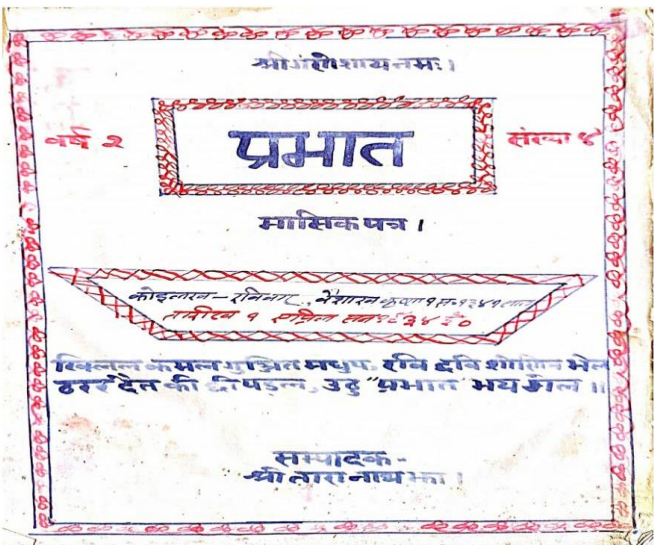 श्रीगणेशाय नमः।
वर्ष २
प्रभात
संख्या ४
मासिक पत्र।
कोइलख - रविवार, वैशाख कृष्ण १ स० १३४१ साल
तारीख १ एप्रिल सन् १९३४ ई०
खिलल कमल गुञ्जित मधुप, रवि छवि शोभित भेल
ठरर दैत की छी पड़ल, उठु "प्रभात" भय गेल॥
सम्पादक -
श्री तारा नाथ झा।